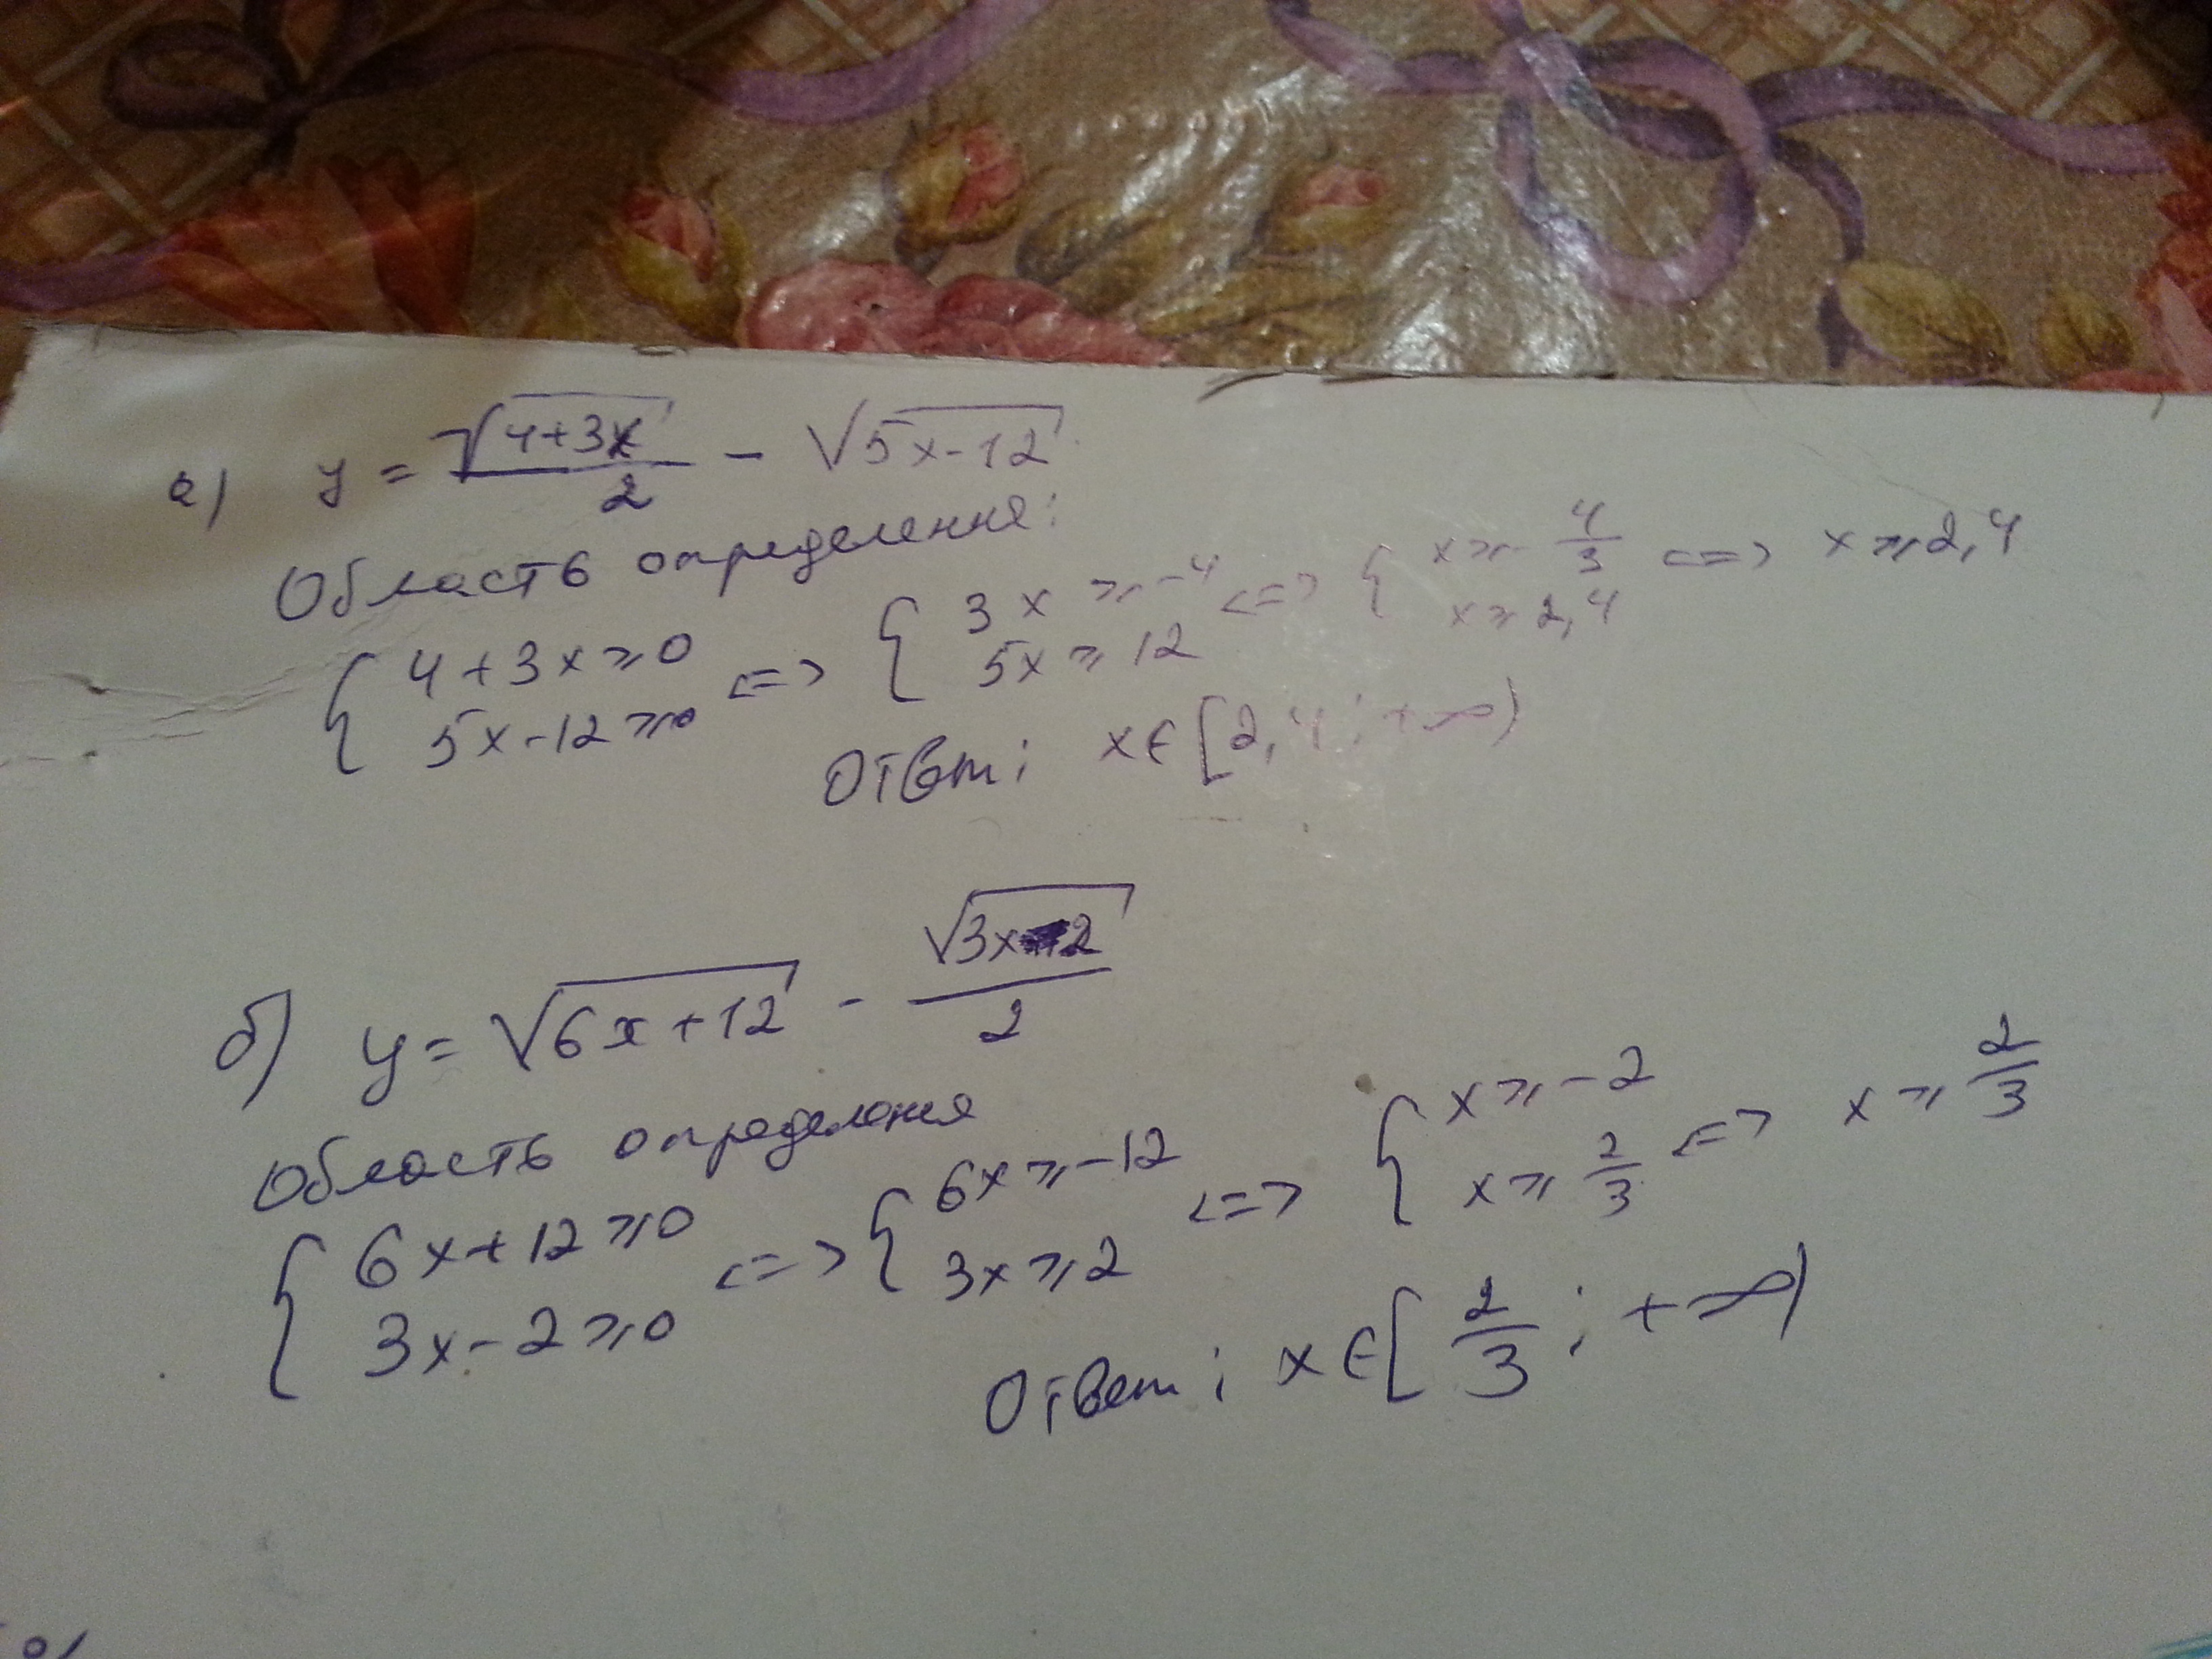 а) y = √(4+3x)/2 - √(5x-12)
Область определения:
{ 4+3x≥0 <=> { 3x≥-4 <=> { x≥-4/3 <=> x≥2,4
{ 5x-12≥0 { 5x≥12 { x≥2,4
Ответ: x∈[2,4; +∞)
б) y = √(6x+12) - √(3x-2)/2
Область определения
{ 6x+12≥0 <=> { 6x≥-12 <=> { x≥-2 <=> x≥2/3
{ 3x-2≥0 { 3x≥2 { x≥2/3
Ответ: x∈[2/3; +∞)